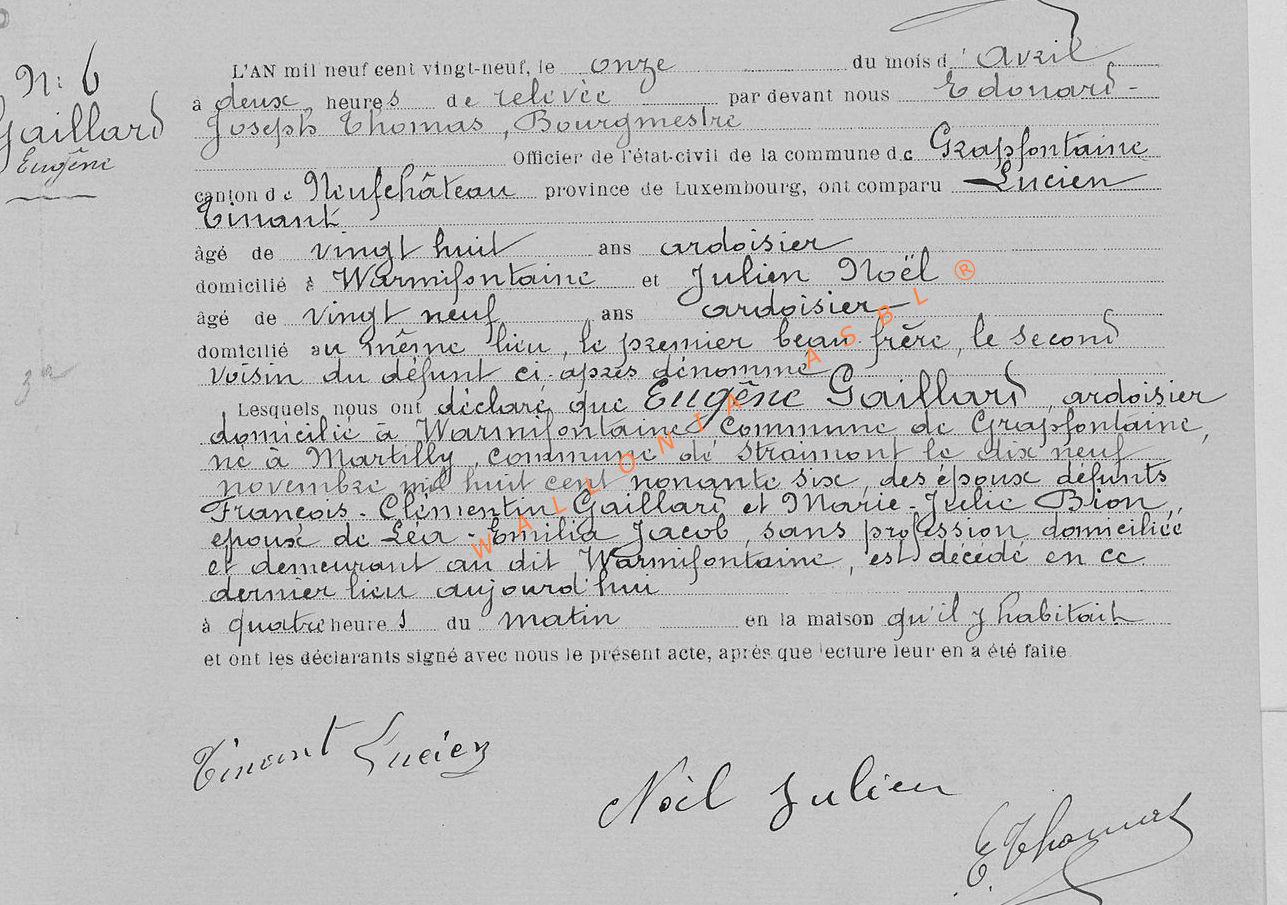 N: 6
Gaillard
Eugène
L'AN mil neuf cent vingt-neuf, le onze du mois d'avril
à deux heures de relevée par devant nous Edouard-
Joseph Thomas, Bourgmestre
Officier de l'état-civil de la commune de Grapfontaine
canton de Neufchâteau province de Luxembourg, ont comparu Lucien
Tinant
âgé de vingt huit ans ardoisier
domicilié à Warmifontaine et Julien Noël
âgé de vingt neuf ans ardoisier
domicilié au même lieu, le premier beau frère, le second
voisin du défunt ci-après dénommé
Lesquels nous ont déclaré que Eugène Gaillard, ardoisier
domicilié à Warmifontaine commune de Grapfontaine,
né à Martilly, commune de Straimont le dix neuf
novembre mil huit cent nonante six, des époux défunts
François-Clémentin Gaillard et Marie-Julie Bion,
époux de Léa-Emilia Jacob, sans profession domiciliée
et demeurant au dit Warmifontaine, est décédé en ce
dernier lieu aujourd'hui
à quatre heures du matin en la maison qu'il y habitait
et ont les déclarants signé avec nous le présent acte, après que lecture leur en a été faite
Tinant Lucien
Noël Julien
E. Thomas
WALLONIA ASBL ®